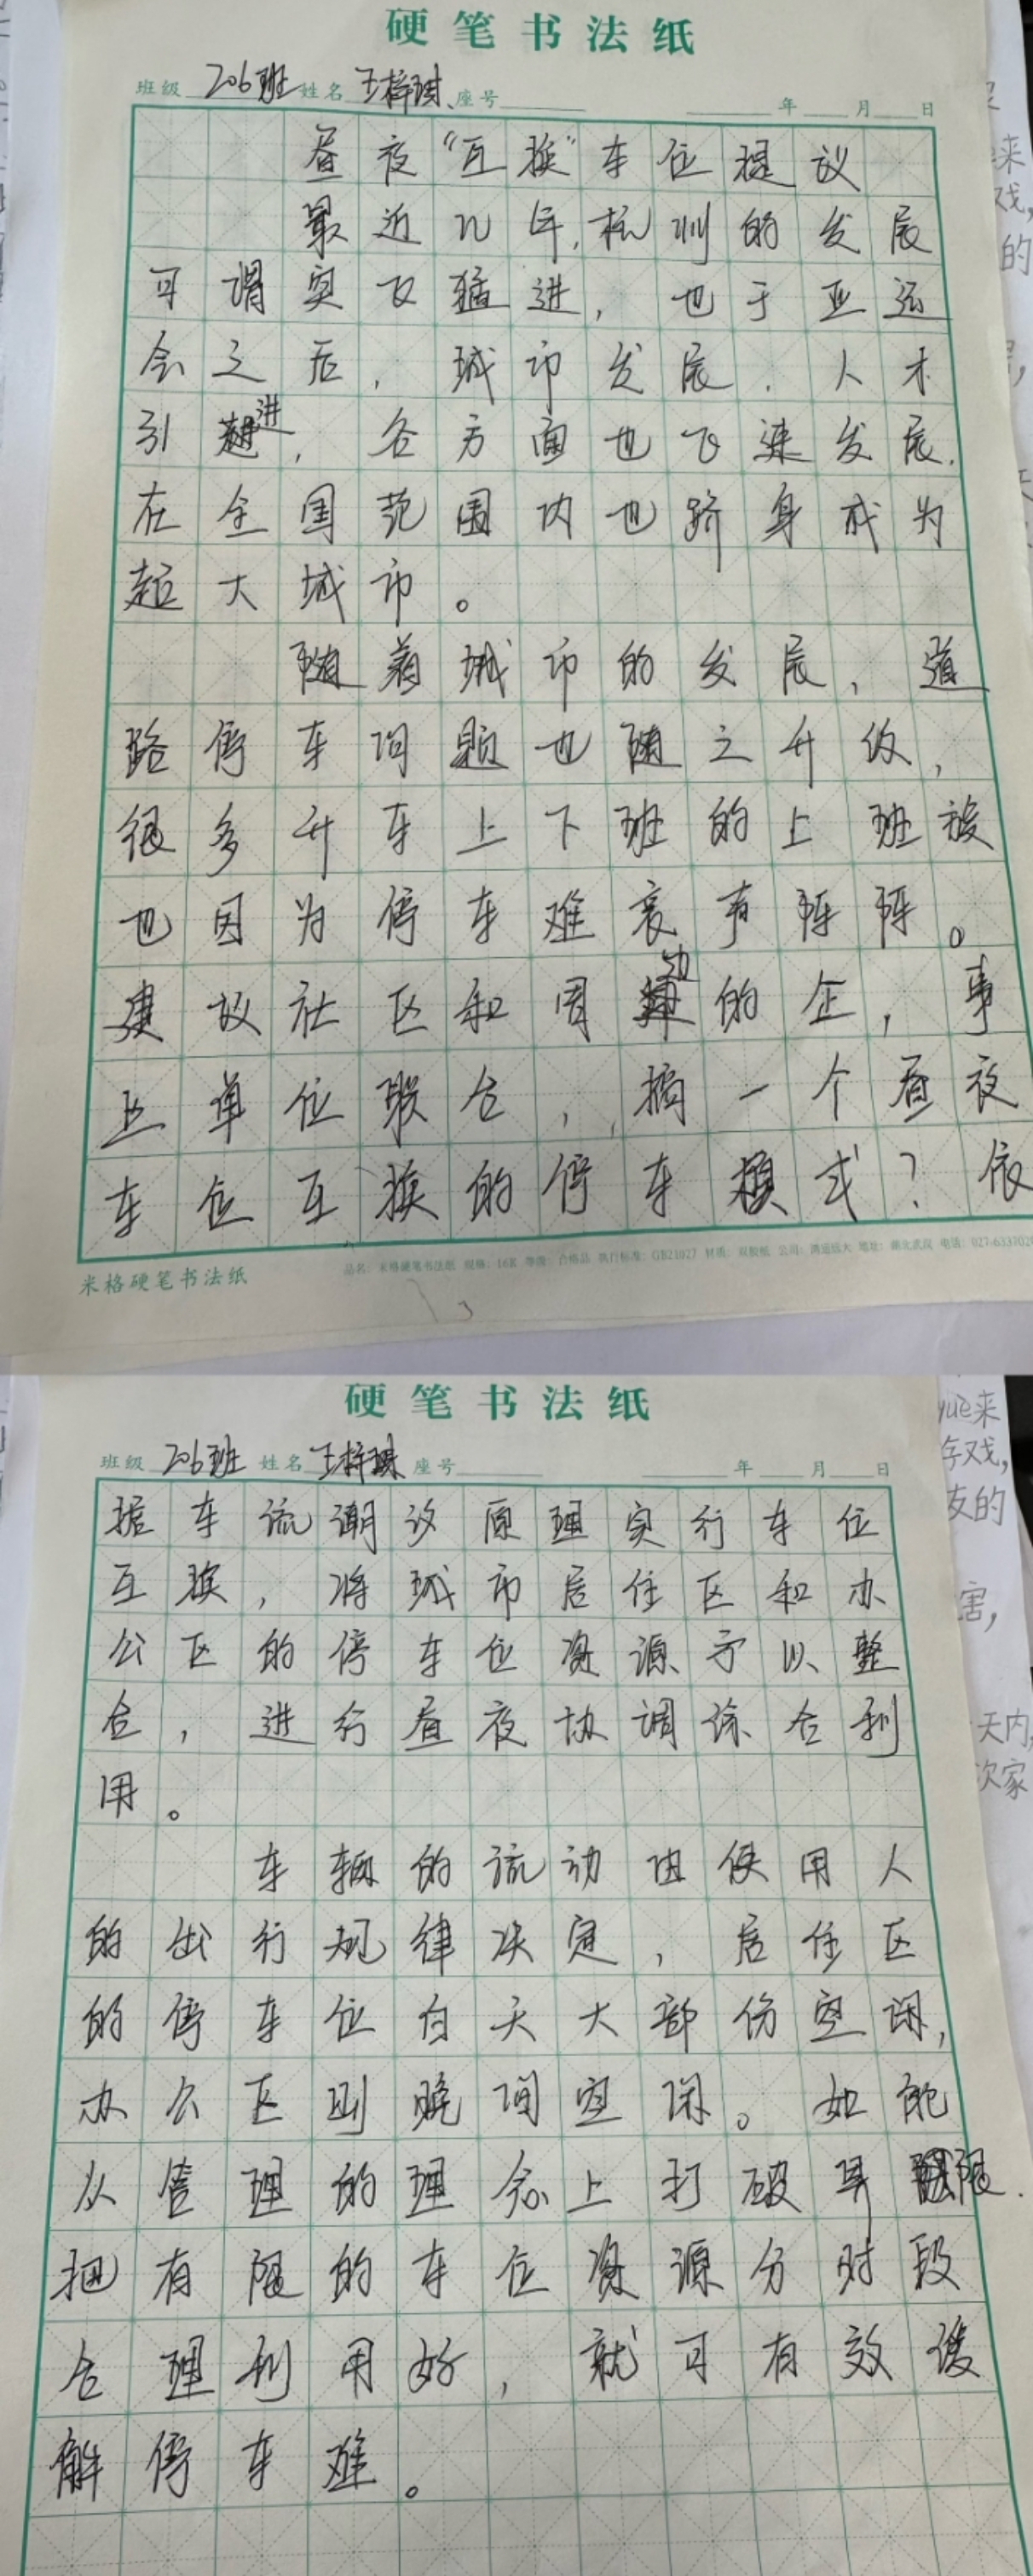 硬笔书法纸
班级 206班 姓名 王梓琪 座号 年 月 日
昼夜“互换”车位提议
最近几年,杭州的发展
可谓突飞猛进,也于亚运
会之后,城市发展、人才
引进,各方面也飞速发展.
在全国范围内也跻身成为
超大城市。
随着城市的发展,道
路停车问题也随之升级,
很多开车上下班的上班族
也因为停车难哀声阵阵。
建议社区和周边的企,事
业单位联合,搞一个昼夜
车位互换的停车模式?依
米格硬笔书法纸
品名:米格硬笔书法纸 规格:16K 等级:合格品 执行标准:GB21027 材质:双胶纸 公司:鸿运恒大 地址:湖北武汉 电话:027-6331020
硬笔书法纸
班级 206班 姓名 王梓琪 座号 年 月 日
据车流潮汐原理实行车位
互换,将城市居住区和办
公区的停车位资源予以整
合,进行昼夜协调综合利
用。
车辆的流动由使用人
的出行规律决定,居住区
的停车位白天大部份空闲,
办公区则晚间空闲。如能
从管理的理念上打破界限.
把有限的车位资源分时段
合理利用好,就可有效缓
解停车难。
yue来
友的
害,
天内,
次家